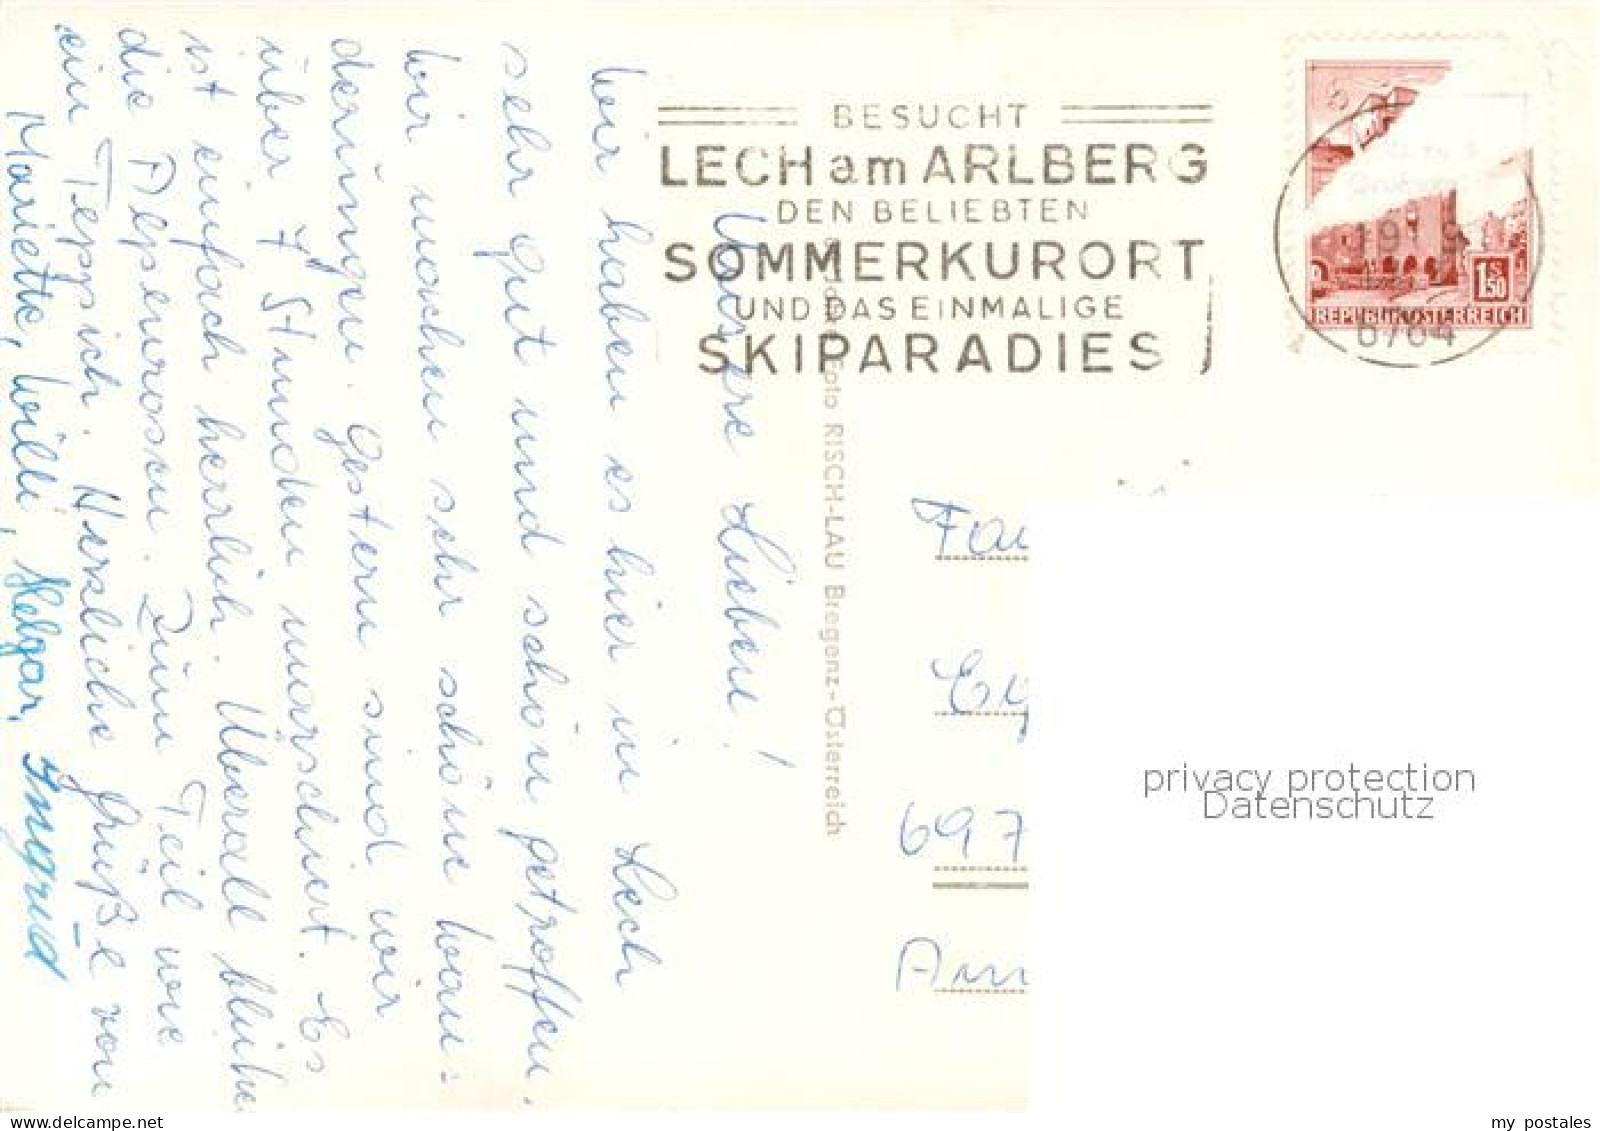 BESUCHT
LECH am ARLBERG
DEN BELIEBTEN
SOMMERKURORT
UND DAS EINMALIGE
SKIPARADIES
REPUBLIK ÖSTERREICH
1 S 50
6764
Foto RISCH-LAU Bregenz-Österreich
Unsere Lieben!
Wir haben es hier in Lech
sehr gut und schön getroffen.
Wir machen sehr schöne Wan-
derungen. Gestern sind wir
über 7 Stunden marschiert. Es
ist einfach herrlich. Überall blühen
die Alpenrosen. Zum Teil wie
ein Teppich. Herzliche Grüße von
Mariette, Willi, Helgar, Ingrid
697
privacy protection
Datenschutz
my postales